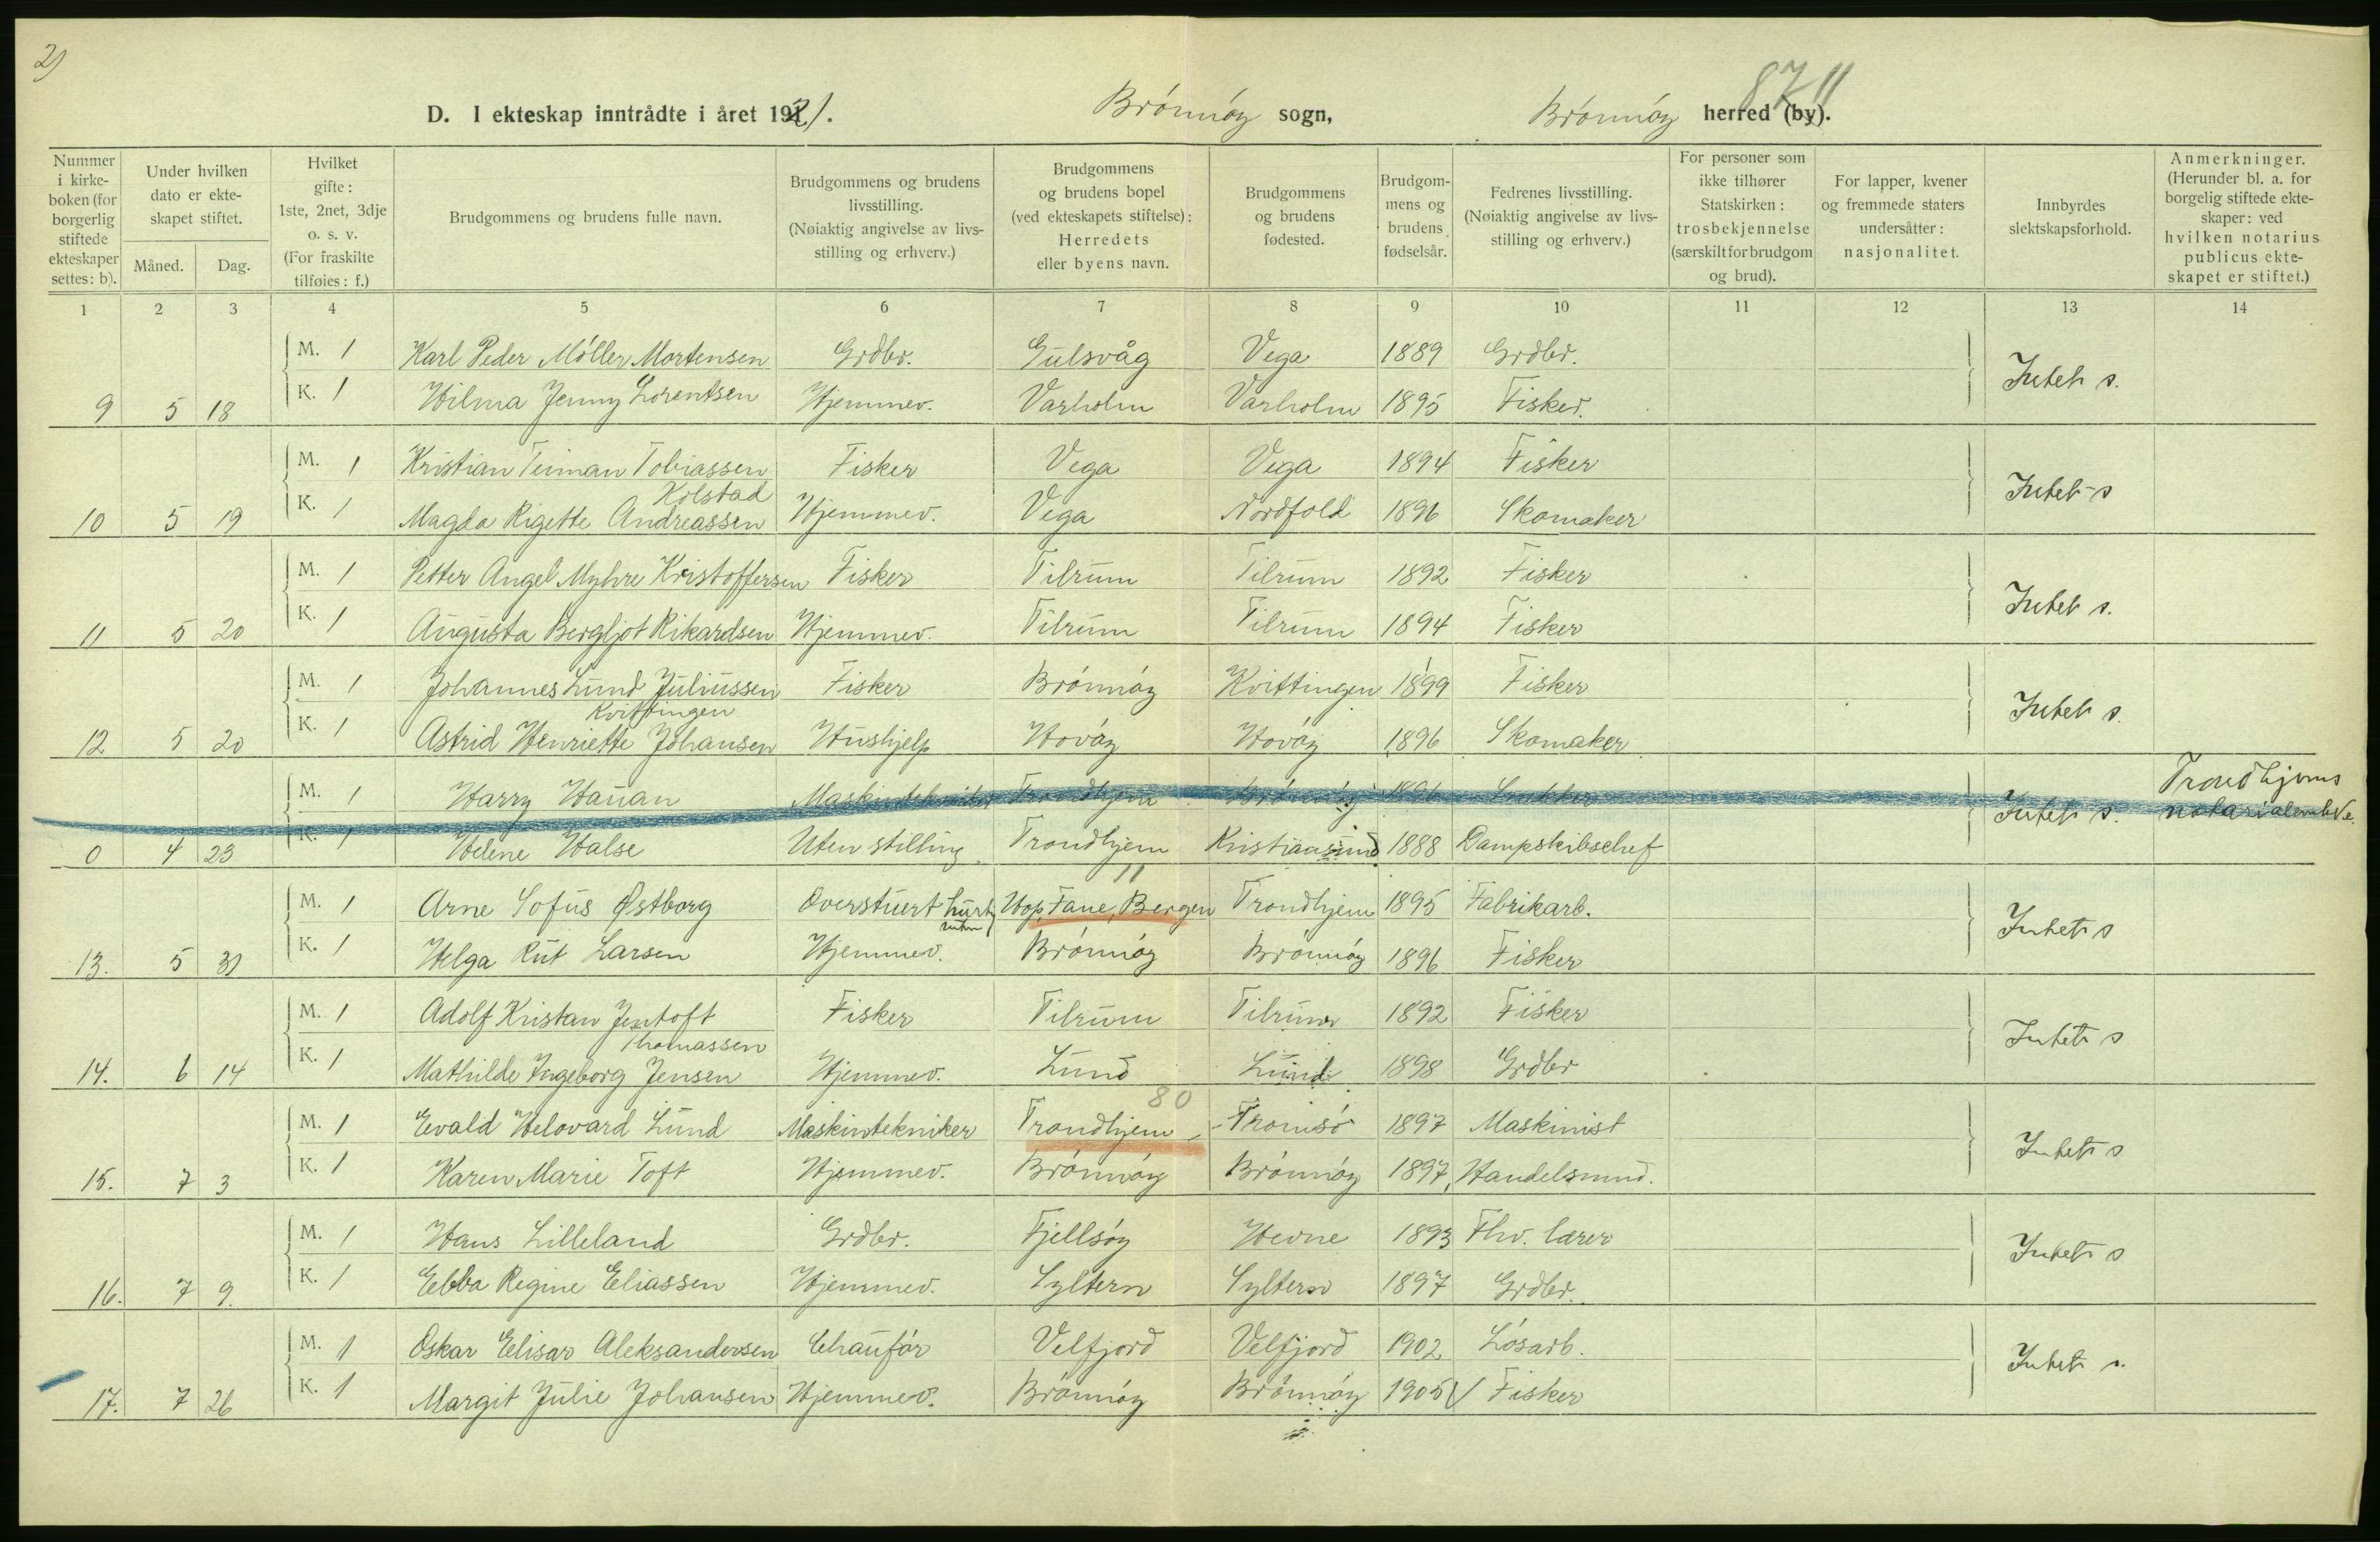 2)
D. I ekteskap inntrådte i året 1921. Brønnøy sogn, Brønnøy herred (by). 8711
Nummer i kirke-boken (for borgerlig stiftede ekteskaper settes: b).
Under hvilken dato er ekte-skapet stiftet.
Måned. Dag.
Hvilket gifte: 1ste, 2net, 3dje o. s. v. (For fraskilte tilføies: f.)
Brudgommens og brudens fulle navn.
Brudgommens og brudens livsstilling. (Nøiaktig angivelse av livs-stilling og erhverv.)
Brudgommens og brudens bopel (ved ekteskapets stiftelse): Herredets eller byens navn.
Brudgommens og brudens fødested.
Brudgom-mens og brudens fødselsår.
Fedrenes livsstilling. (Nøiaktig angivelse av livs-stilling og erhverv.)
For personer som ikke tilhører Statskirken: trosbekjennelse (særskilt for brudgom og brud).
For lapper, kvener og fremmede staters undersåtter: nasjonalitet.
Innbyrdes slektskapsforhold.
Anmerkninger. (Herunder bl. a. for borgelig stiftede ekte-skaper: ved hvilken notarius publicus ekte-skapet er stiftet.)
1 2 3 4 5 6 7 8 9 10 11 12 13 14
M. 1 Karl Peder Møller Mortensen Grdbr. Gulsvåg Vega 1889 Grdbr.
Intet s.
9 5 18 K. 1 Hilma Jenny Lorentsen Hjemmev. Varholm Varholm 1895 Fisker.
M. 1 Kristian Teiman Tobiassen Fisker Vega Vega 1894 Fisker
Kolstad
Intet s
10 5 19 K. 1 Magda Rigette Andreassen Hjemmev. Vega Nordfold 1896 Skomaker
M. 1 Petter Angel Myhre Kristoffersen Fisker Tilrum Tilrum 1892 Fisker
Intet s.
11 5 20 K. 1 Augusta Bergljot Rikardsen Hjemmev. Tilrum Tilrum 1894 Fisker
M. 1 Johannes Lund Juliussen Fisker Brønnøy Kvittingen 1899 Fisker
Kvittingen
Intet s.
12 5 20 K. 1 Astrid Henriette Johansen Hushjelp Hovøy Hovøy 1896 Skomaker
M. 1 Harry Hauan Maskintekniker Trondhjem Brønnøy 1896
Intet s. Trondhjems
0 4 23 K. 1 Helene Halse Uten stilling Trondhjem Kristiansund 1888 Dampskibschef
11
M. 1 Arne Sofus Østborg Overstuert hurtig ruten Hop, Fane, Bergen Trondhjem 1895 Fabrikarb.
Intet s
13. 5 31 K. 1 Helga Rut Larsen Hjemmev. Brønnøy Brønnøy 1896 Fisker
M. 1 Adolf Kristan Jentoft Fisker Tilrum Tilrum 1892 Fisker
Thomassen
Intet s
14. 6 14 K. 1 Mathilde Ingeborg Jensen Hjemmev. Lund Lund 1898 Grdbr
80
M. 1 Evald Helovard Lund Maskintekniker Trondhjem Tromsø 1897 Maskinist
Intet s
15. 7 3 K. 1 Karen Marie Toft Hjemmev. Brønnøy Brønnøy 1897 Handelsmnd.
M. 1 Hans Lilleland Grdbr. Fjellsøy Hevne 1893 Fhv. lærer
Intet s
16. 7 9. K. 1 Ebba Regine Eliassen Hjemmev. Syltern Syltern 1897 Grdbr.
M. 1 Oskar Elisar Aleksandersen Chaufør Velfjord Velfjord 1902 Løsarb.
Intet s.
17. 7 26 K. 1 Margit Julie Johansen Hjemmev. Brønnøy Brønnøy 1905 Fisker